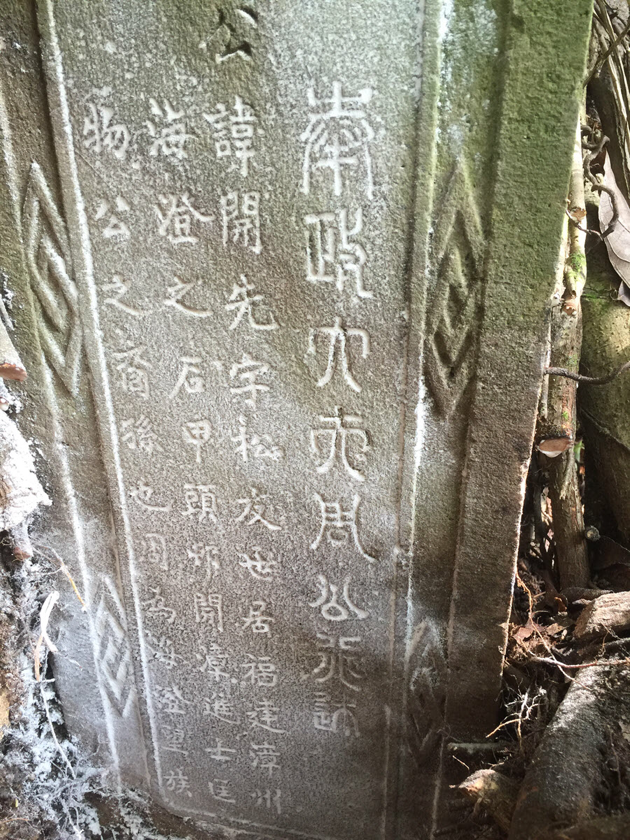 奉政大夫周公行述
公諱開先字松友世居福建漳州
海澄之石甲頭邨開漳進士匡
物公之裔孫也周為海澄望族